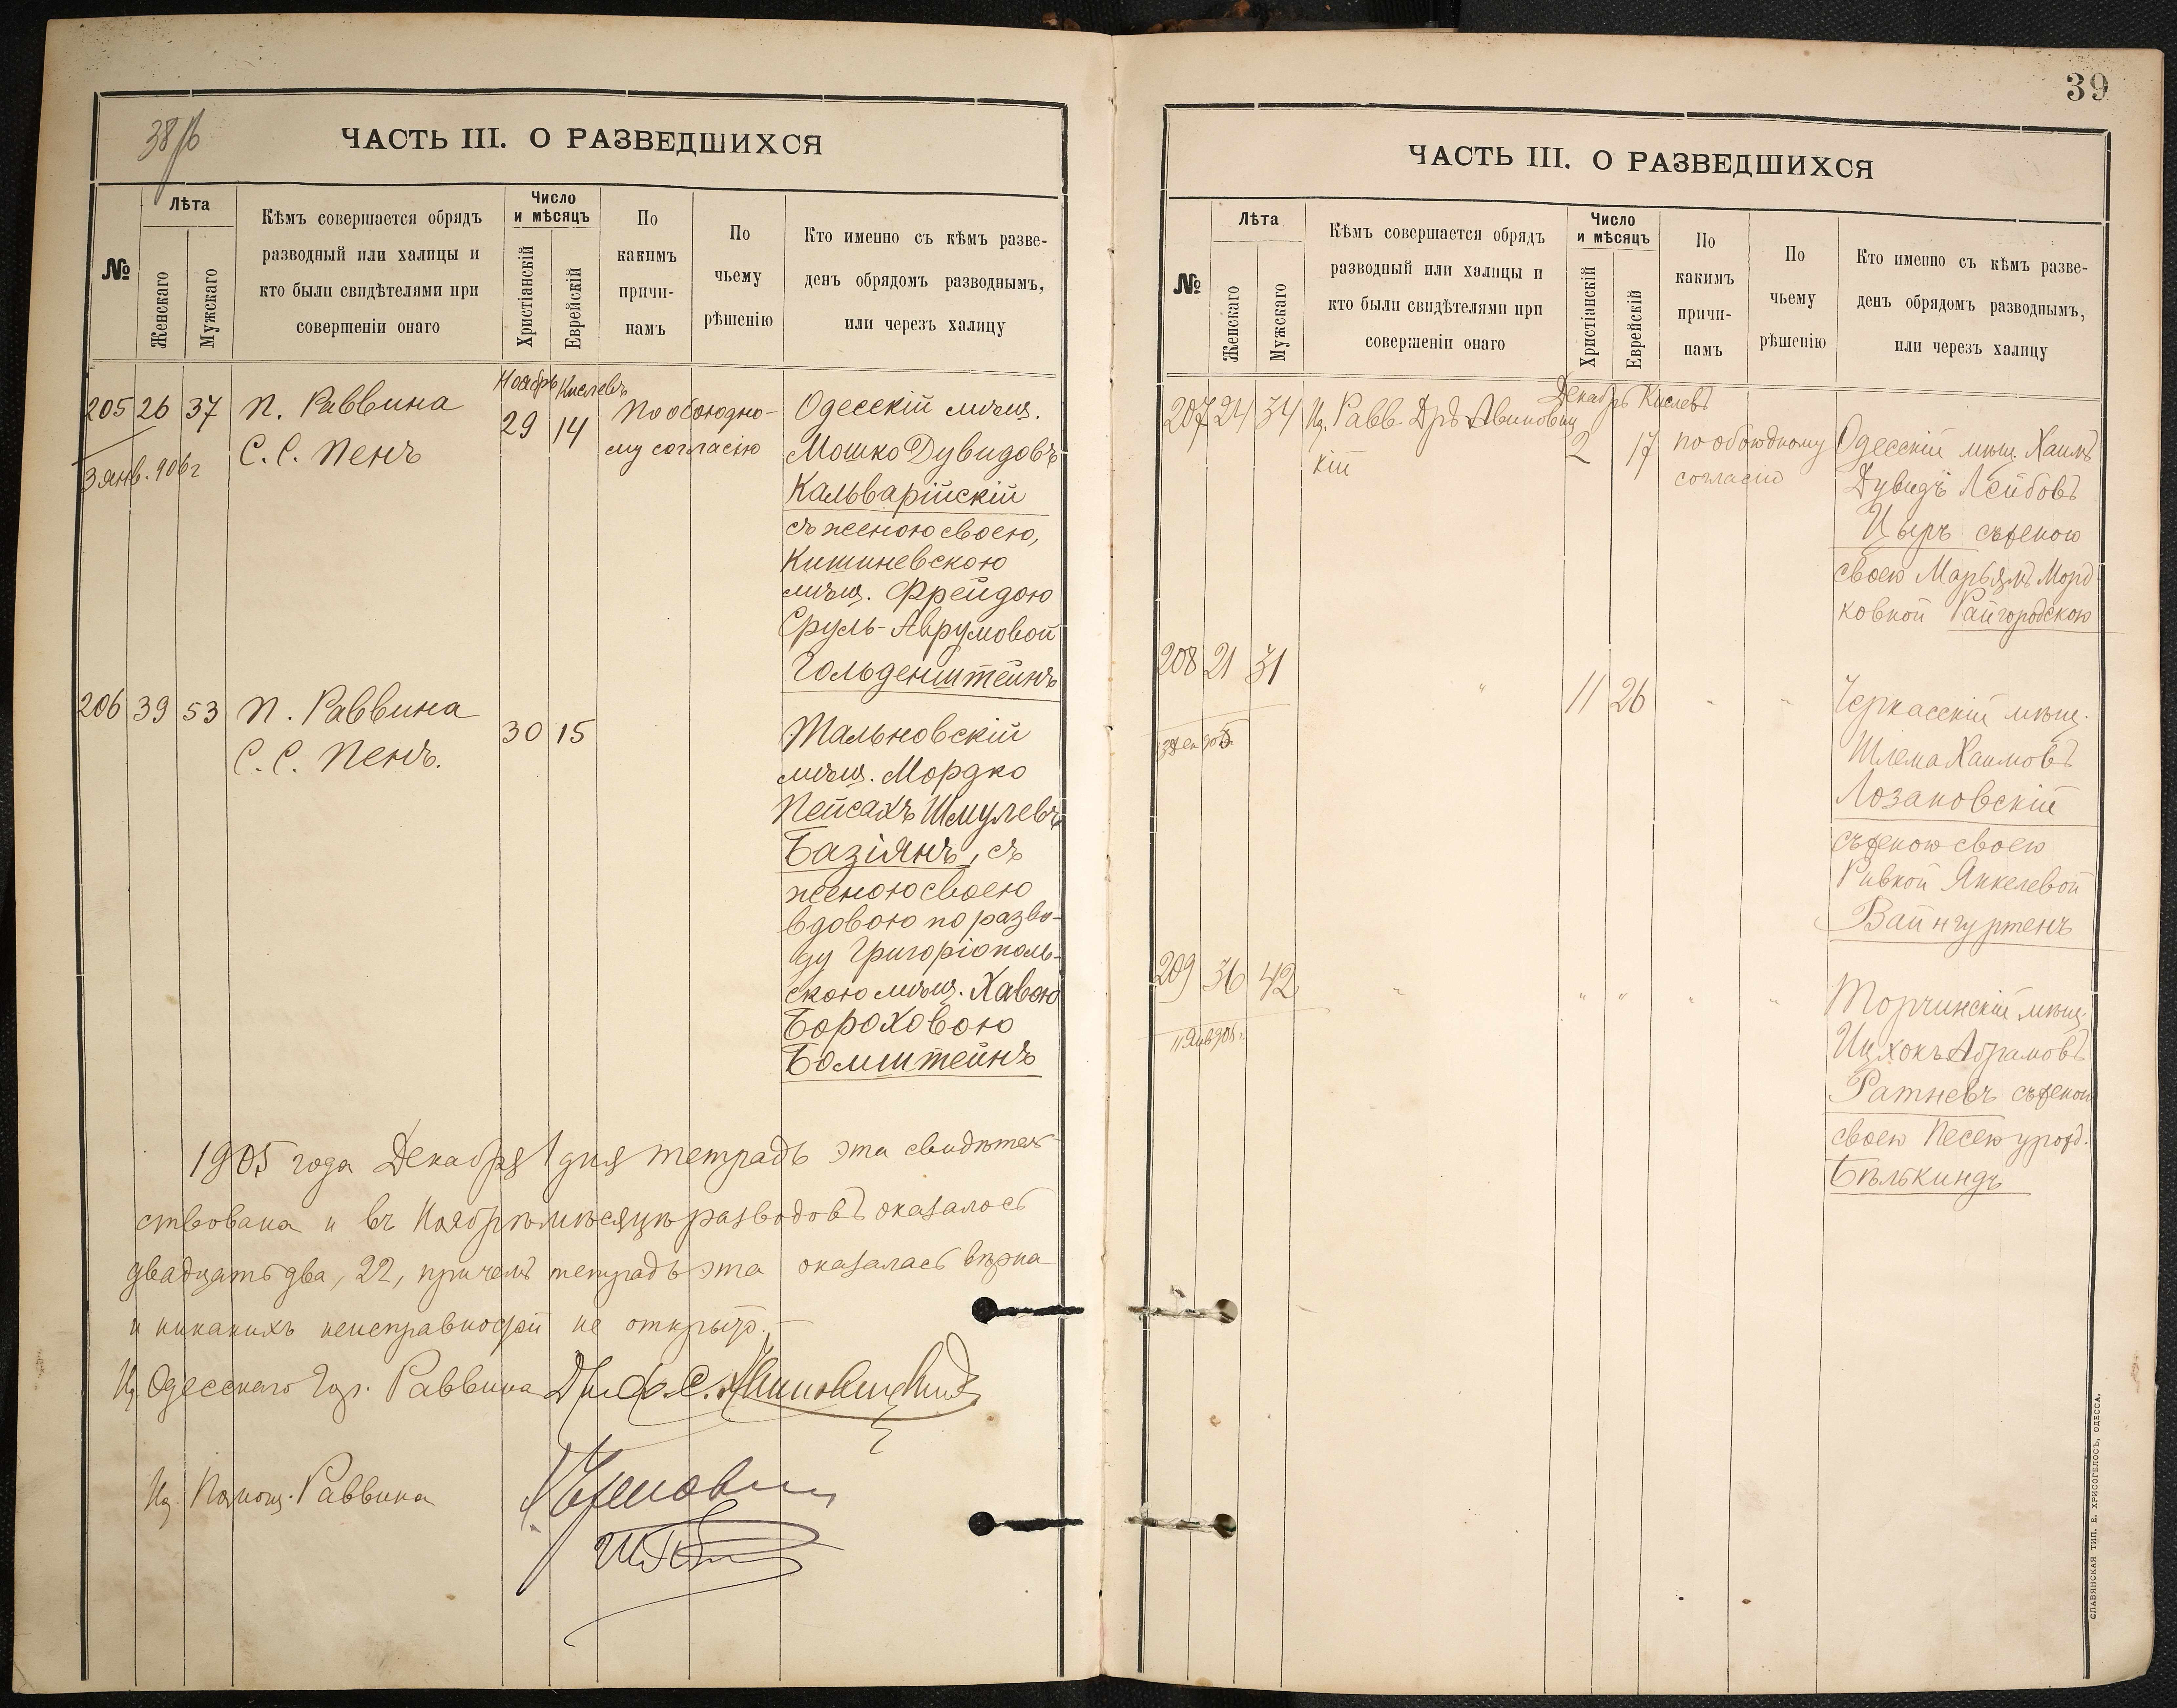 38 об
ЧАСТЬ III. О РАЗВЕДШИХСЯ
№
Лѣта
Женскаго
Мужскаго
Кѣмъ совершается обрядъ
разводный или халицы и
кто были свидѣтелями при
совершеніи онаго
Число
и мѣсяцъ
Христіанскій
Еврейскій
По
какимъ
причи-
намъ
По
чьему
рѣшенію
Кто именно съ кѣмъ разве-
денъ обрядомъ разводнымъ,
или черезъ халицу
Ноябрь Кислевъ
205 26 37 П. Раввина 29 14 По обоюдно- Одесскій мѣщ.
3 янв. 906 г С. С. Пенъ му согласію Мошко Дувидовъ
Кальварійскій
съ женою своею,
Кишиневскою
мѣщ. Фрейдою
Сруль-Аврумовой
Гольденштейнъ
206 39 53 П. Раввина 30 15 Тальновскій
С. С. Пенъ. мѣщ. Мордко
Пейсахъ Шмулевъ
Базіянъ, съ
женою своею
вдовою по разво-
ду Григоріополь-
скою мѣщ. Хавою
Бороховою
Бомштейнъ
1905 года Декабря 1 дня тетрадь эта свидѣтель-
ствована и въ Ноябрѣ мѣсяцѣ разводовъ оказалось
двадцать два, 22, причемъ тетрадь эта оказалась вѣрна
и никакихъ неисправностей не открыто.-
И. д. Одесскаго Гор. Раввина Др.
И. д. Помощ. Раввина
39
ЧАСТЬ III. О РАЗВЕДШИХСЯ
№
Лѣта
Женскаго
Мужскаго
Кѣмъ совершается обрядъ
разводный или халицы и
кто были свидѣтелями при
совершеніи онаго
Число
и мѣсяцъ
Христіанскій
Еврейскій
По
какимъ
причи-
намъ
По
чьему
рѣшенію
Кто именно съ кѣмъ разве-
денъ обрядомъ разводнымъ,
или черезъ халицу
Декабрь Кислевъ
207 24 34 И. д. Равв. Дръ Авиновиц 2 17 по обоюдному Одесскій мѣщ. Хаимъ
кій согласію Дувидъ Лейбовъ
Цыръ съ женою
своею Марьямъ Морд-
ковной Райгородскою
208 21 31 " 11 26 " " Черкасскій мѣщ.
Шлема Хаимовъ
Лозановскій
съ женою своею
Ривкой Янкелевой
Вайнгуртенъ
209 36 42 " " " " " Торчинскій мѣщ.
11 Янв 908 г. Ицхокъ Абрамовъ
Ратневъ съ женою
своею Песею урожд.
Бѣлькиндъ
СЛАВЯНСКАЯ ТИП. Е. ХРИСОГЕЛОСЪ, ОДЕССА.